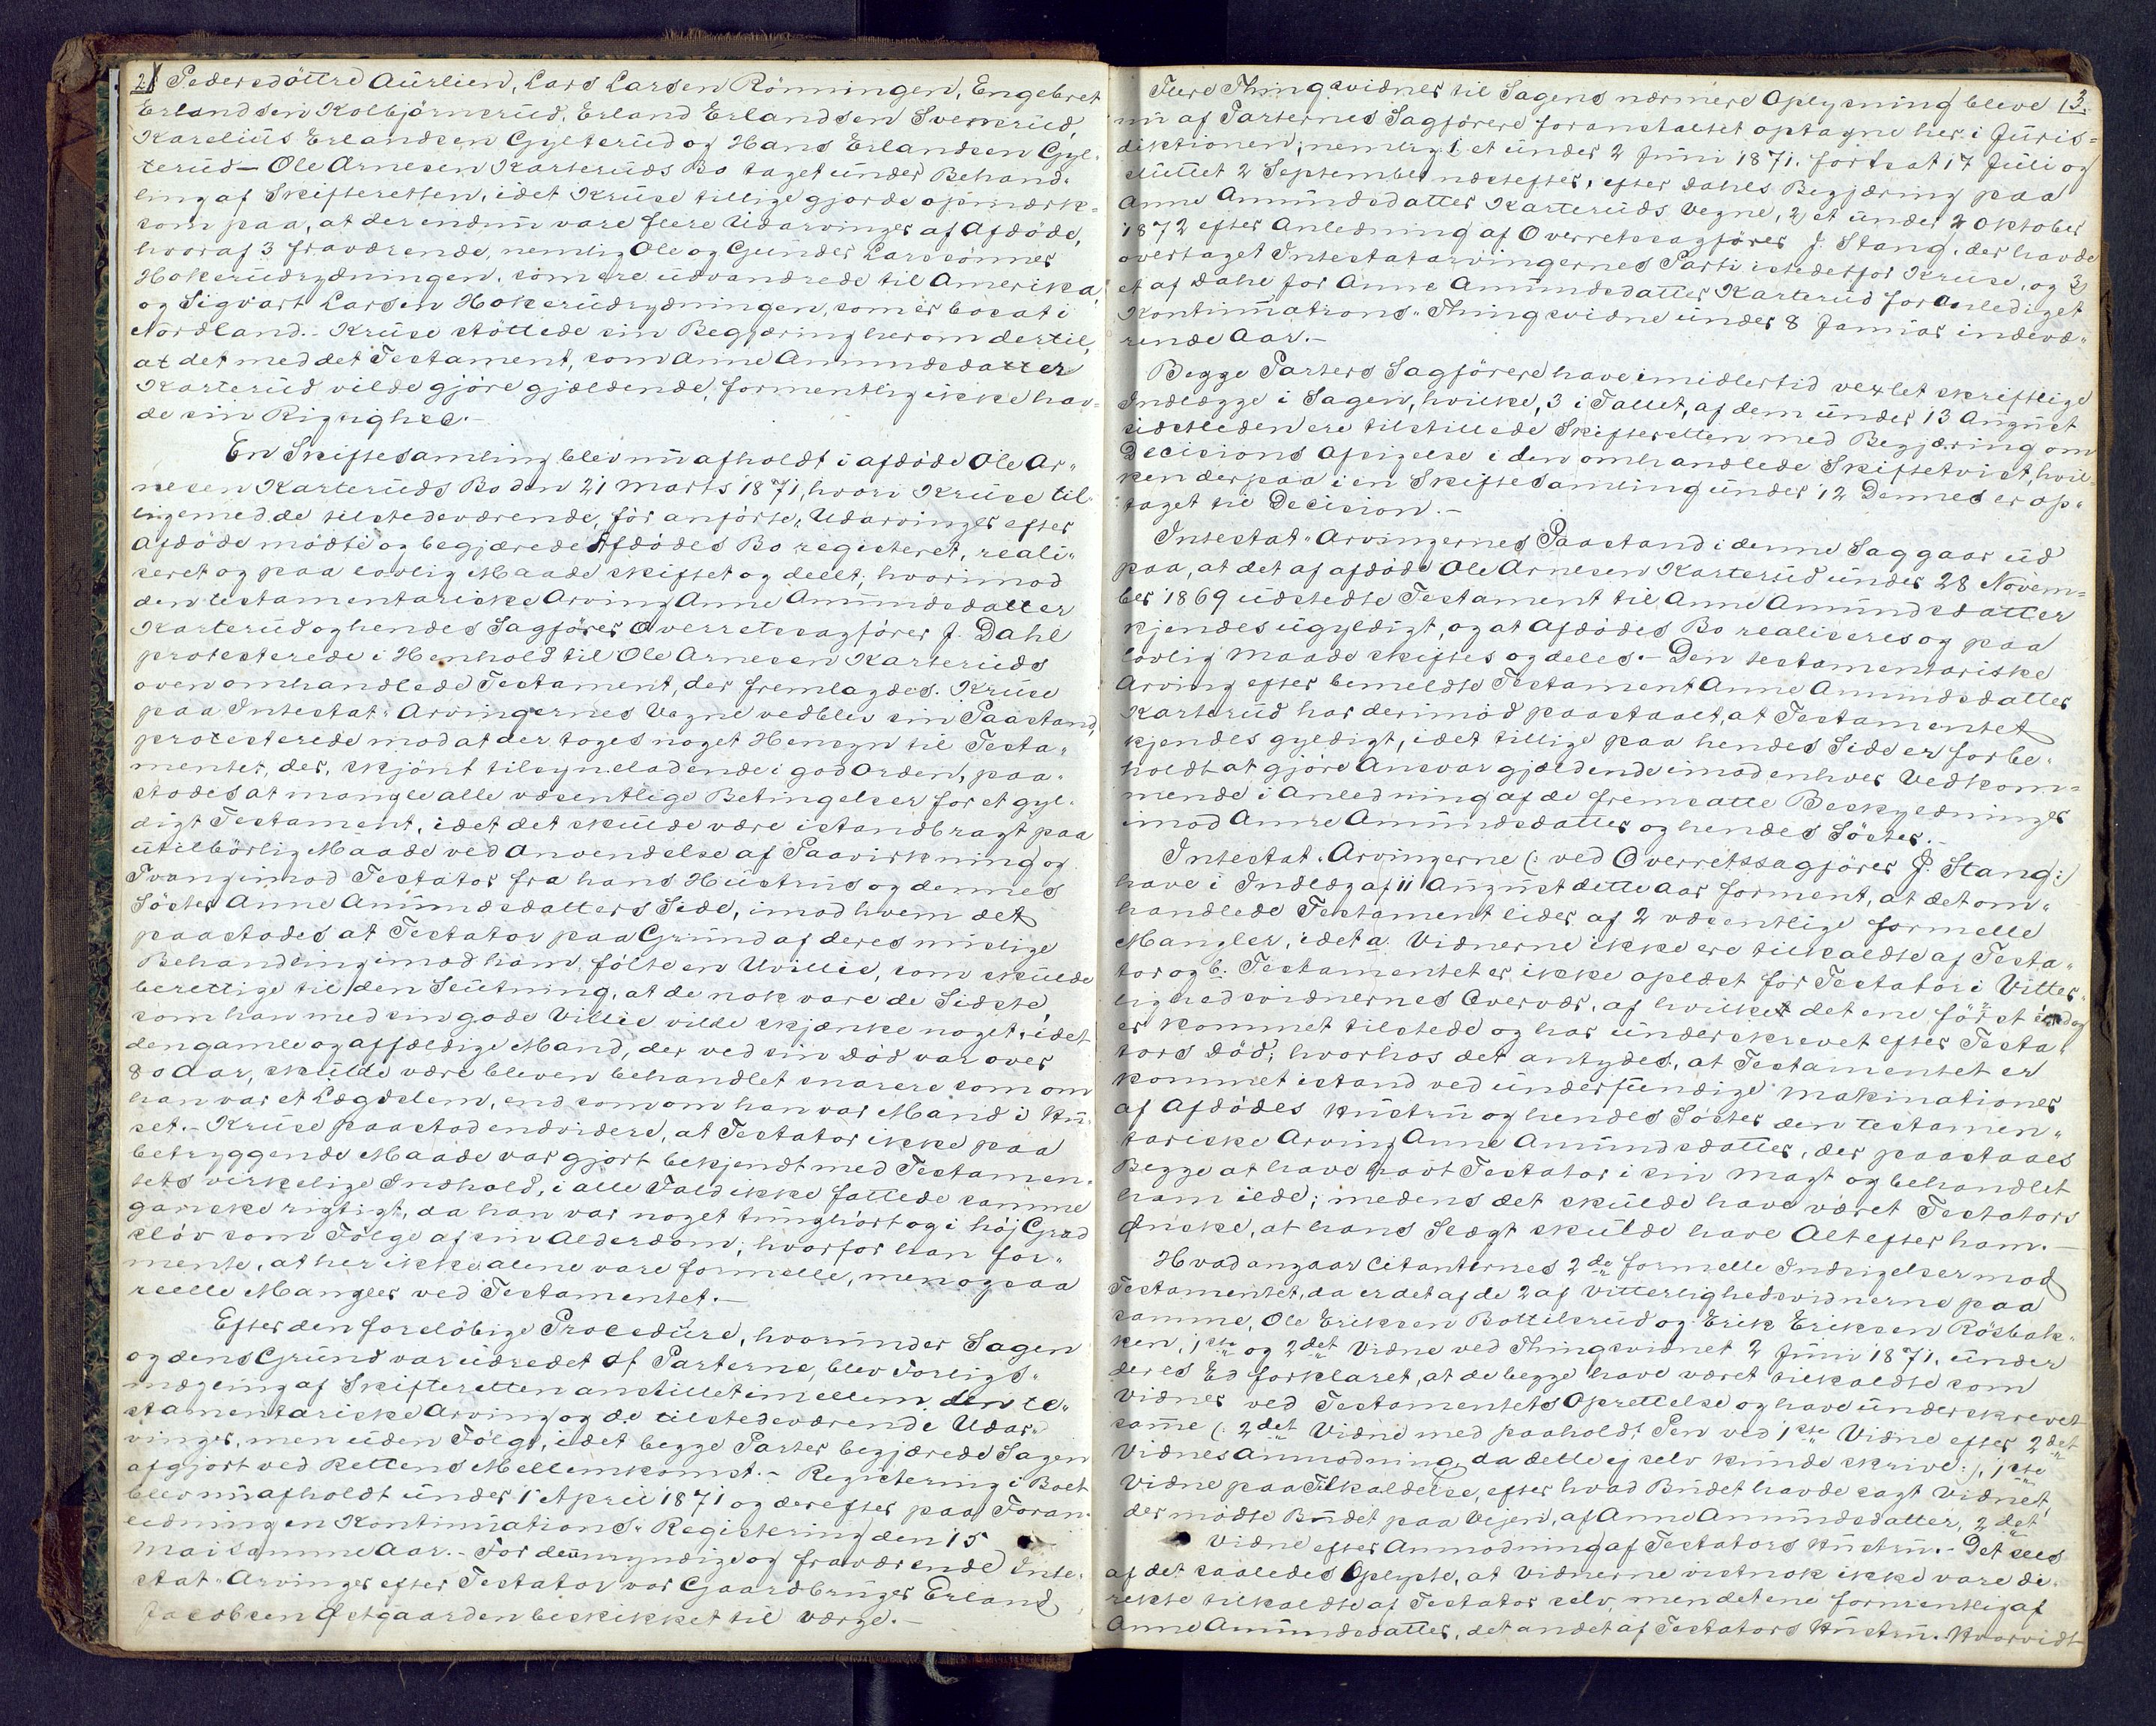 2.
Pedersdöttre Aurlien, Lars Larsen Rönningen, Engebret
Erlandsen Kolbjörnsrud, Erland Erlandsen Svensrud,
Karelius Erlandsen Gylterud og Hans Erlandsen Gyl-
terud – Ole Arnesen Karteruds Bo taget under Behand-
ling af Skifteretten, idet Kruse tillige gjorde opmærk-
som paa, at der endnu vare flere Udarvinger af Afdöde,
hvoraf 3 fraværende, nemlig Ole og Gunder Larssönner
Hokerudrydningen, som ere udvandrede til Amerika,
og Sigvart Larsen Hokerudrydningen, som er bosat i
Nordland. – Kruse stöttede sin Begjæring herom dertil,
at det med det Testament, som Anne Amundsdatter
Karterud vilde gjöre gjældende, formentlig ikke hav-
de sin Rigtighed. –
En Skiftesamling blev nu afholdt i afdöde Ole Ar-
nesen Karteruds Bo den 21 Marts 1871, hvori Kruse til-
ligemed de tilstedeværende, för anförte, Udarvinger efter
Afdöde mödte og begjærede Afdödes Bo registeret, reali-
seret og paa lovlig Maade skiftet og deelt; hvorimod
den testamentariske Arving Anne Amundsdatter
Karterud og hendes Sagförer Overretssagförer J. Dahl
protesterede i Henhold til Ole Arnesen Karteruds
ovenomhandlede Testament, der fremlagdes. Kruse
paa Intestat-Arvingernes Vegne vedblev sin Paastand,
protesterede mod at der toges noget Hensyn til Testa-
mentet, der, skjönt tilsyneladende i god Orden, paa-
stodes at mangle alle væsentlige Betingelser for et gyl-
digt Testament, idet det skulde være istandbragt paa
utilbörlig Maade ved Anvendelse af Paavirkning og
Tvang imod Testator fra hans Hustrus og dennes
Söster Anne Amundsdatters Side, imod hvem det
paastodes at Testator paa Grund af deres uislige
Behandling imod ham, fölte en Uvillie, som skulde
berettige til den Slutning, at de nok vare de Sidste,
som han med sin gode Villie vilde skjænke noget, idet
den gamle og affældige Mand, der ved sin Död var over
80 Aar, skulde være bleven behandlet snarere som om
han var et Lægdslem, end som om han var Mand i Hu-
set. – Kruse paastod endvidere, at Testator ikke paa
betryggende Maade var gjort bekjendt med Testamen-
tets virkelige Indhold, i alle Fald ikke fattede samme
ganske rigtigt, da han var noget tunghört og i höj Grad
slöv som Fölge af sin Alderdom; hvorfor han for-
mente, at her ikke alene vare formelle, men ogsaa
reelle Mangler ved Testamentet. –
Efter den forelöbige Procedure, hvorunder Sagen
og dens Grund var udredet af Parterne, blev Forligs-
mægling af Skifteretten anstillet imellem den te-
stamentariske Arving og de tilstedeværende Udar-
vinger, men uden Fölge, idet begge Parter begjærede Sagen
afgjort ved Rettens Mellemkomst. – Registering i Boet
blev nu afholdt under 1 April 1871 og derefter paa Foran-
ledning en Kontinuations-Registering den 15
Mai samme Aar. – For den myndige og fraværende Inte-
stat-Arvinger efter Testator var Gaardbruger Erland
Jacobsen Østgaarden beskikket til Værge. –
3.
Flere Thingsvidner til Sagens nærmere Oplysning bleve
nu af Parternes Sagförere foranstaltet optagne her i Juris-
diktionen; nemlig 1 et under 2 Juni 1871, fortsat 17 Juli og
sluttet 2 September næstefter, efter Dahls Begjæring paa
Anne Amundsdatter Karteruds Vegne, 2 et under 2 Oktober
1872 efter Anledning af Overretssagförer J. Stang, der havde
overtaget Intestatarvingernes Parti istedetfor Kruse, og 3
et af Dahl for Anne Amundsdatter Karterud foranlediget
Kontinuations-Thingsvidne under 8 Januar indevæ-
rende Aar. –
Begge Parters Sagförere have imidlertid vexlet skriftlige
Indlægge i Sagen, hvilke, 3 i Tallet, af dem under 13 August
sidstleden ere tilstillede Skifteretten med Begjæring om
Decisions Afsigelse i den omhandlede Skiftetvist, hvil-
ken derpaa i en Skiftesamling under 12 Dennes er op-
taget til Decision. –
Intestat-Arvingernes Paastand i denne Sag gaar ud
paa, at det af afdöde Ole Arnesen Karterud under 28 Novem-
ber 1869 udstedte Testament til Anne Amundsdatter
kjendes ugyldigt, og at Afdödes Bo realiseres og paa
lovlig Maade skiftes og deles. – Den testamentariske
Arving efter bemeldte Testament Anne Amundsdatter
Karterud har derimod paastaaet, at Testamentet
kjendes gyldigt, idet tillige paa hendes Side er forbe-
holdt at gjöre Ansvar gjældende imod enhver Vedkom-
mende i Anledning af de fremsatte Beskyldninger
imod Anne Amundsdatter og hendes Söster. –
Intestat-Arvingerne (: ved Overretssagförer J. Stang :)
have i Indlæg af 11 August dette Aar forment, at det om-
handlede Testament lider af 2 væsentlige formelle
Mangler, idet a: Vidnerne ikke ere tilkaldte af Testa-
tor og b: Testamentet er ikke oplæst for Testator i Vitter-
lighedsvidnernes Overvær, af hvilket det ene först endog
er kommet tilstede og har underskrevet efter Testa-
tors Död; hvorhos det antydes, at Testamentet er
kommet istand ved underfundige Makinationer
af Afdödes Hustru og hendes Söster den testamen-
tariske Arving Anne Amundsdatter, der paastaaes
Begge at have havt Testator i sin Magt og behandlet
ham ilde; medens det skulde have været Testators
Ønske, at hans Slægt skulde have Alt efter ham. –
Hvad angaar Citanternes 2de formelle Indsigelser mod
Testamentet, da er det af de 2 af Vitterlighedsvidnerne paa
samme, Ole Eriksen Bottilsrud og Erik Eriksen Rösbak-
ken, 1ste og 2det Vidne ved Thingsvidnet 2 Juni 1871, under
deres Ed forklaret, at de begge have været tilkaldte som
Vidner ved Testamentets Oprettelse og have underskrevet
samme (: 2det Vidne med paaholdt Pen ved 1ste Vidne efter 2det
Vidnes Anmodning, da dette ej selv kunde skrive :), 1ste
Vidne paa Tilkaldelse, efter hvad Budet havde sagt Vidnet,
der mödte Budet paa Vejen, af Anne Amundsdatter, 2det
Vidne efter Anmodning af Testators Hustru. – Det sees
af det saaledes Oplyste, at Vidnerne vistnok ikke vare di-
rekte tilkaldte af Testator selv, men det ene formentlig af
Anne Amundsdatter, det andet af Testators Hustru. Hvorvidt